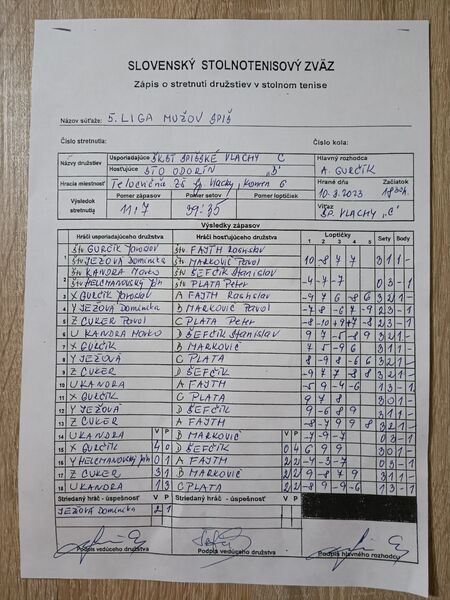 SLOVENSKÝ STOLNOTENISOVÝ ZVÄZ
Zápis o stretnutí družstiev v stolnom tenise
Názov súťaže: 5. LIGA MUŽOV SPIŠ
Číslo stretnutia: Číslo kola:
Názvy družstiev Usporiadajúce SKST SPIŠSKÉ VLACHY C Hlavný rozhodca
Hosťujúce STO ODORÍN "B" A. GURČÍK
Hracia miestnosť Telocvičňa ZŠ Sp. Vlachy, Komen 6 Hrané dňa Začiatok
Výsledok stretnutia Pomer zápasov Pomer setov Pomer loptičiek 10.3.2023
11:7 39:35 Víťaz SP. VLACHY "C"
Výsledky zápasov
Hráči usporiadajúceho družstva Hráči hosťujúceho družstva Loptičky 1 2 3 4 5 Sety Body
GURČÍK Jaroslav FAJTH Rastislav
1 JEŽOVÁ Dominika MARKOVIČ Pavol 10 -8 4 7 3 1 1 -
KANDRA Marko ŠEFČÍK Stanislav
2 HELCMANOVSKÝ PLATA Peter -4 -7 -7 0 3 - 1
3 X GURČÍK Jaroslav A FAJTH Rastislav -9 7 6 -8 6 3 2 1 -
4 Y JEŽOVÁ Dominika B MARKOVIČ Pavol
5 Z CUKER Pavol C PLATA Peter
6 U KANDRA Marko D ŠEFČÍK Stanislav
7 X GURČÍK B MARKOVIČ
8 Y JEŽOVÁ C PLATA
9 Z CUKER D ŠEFČÍK
10 U KANDRA A FAJTH -5 9 -4 -6 1 3 - 1
11 X GURČÍK C PLATA 9 7 8 3 0 1 -
12 Y JEŽOVÁ D ŠEFČÍK 9 -6 8 9 3 1 1 -
13 Z CUKER A FAJTH -8 -7 9 9 8 3 2 1 -
14 U KANDRA V P B MARKOVIČ V P -7 -9 -7 0 3 - 1
15 X GURČÍK 4 0 D ŠEFČÍK 0 4 6 9 9 3 0 1 -
16 Y HELCMANOVSKÝ 0 1 A FAJTH 2 2 -4 -3 -7 0 3 - 1
17 Z CUKER 3 1 B MARKOVIČ 2 2 9 -8 7 9 3 1 1 -
18 U KANDRA 1 3 C PLATA 2 2 -8 9 -9 -6 1 3 - 1
Striedaný hráč - úspešnosť V P Striedaný hráč - úspešnosť V P
JEŽOVÁ Dominika 2 1
Podpis vedúceho družstva Podpis vedúceho družstva Podpis hlavného rozhodcu